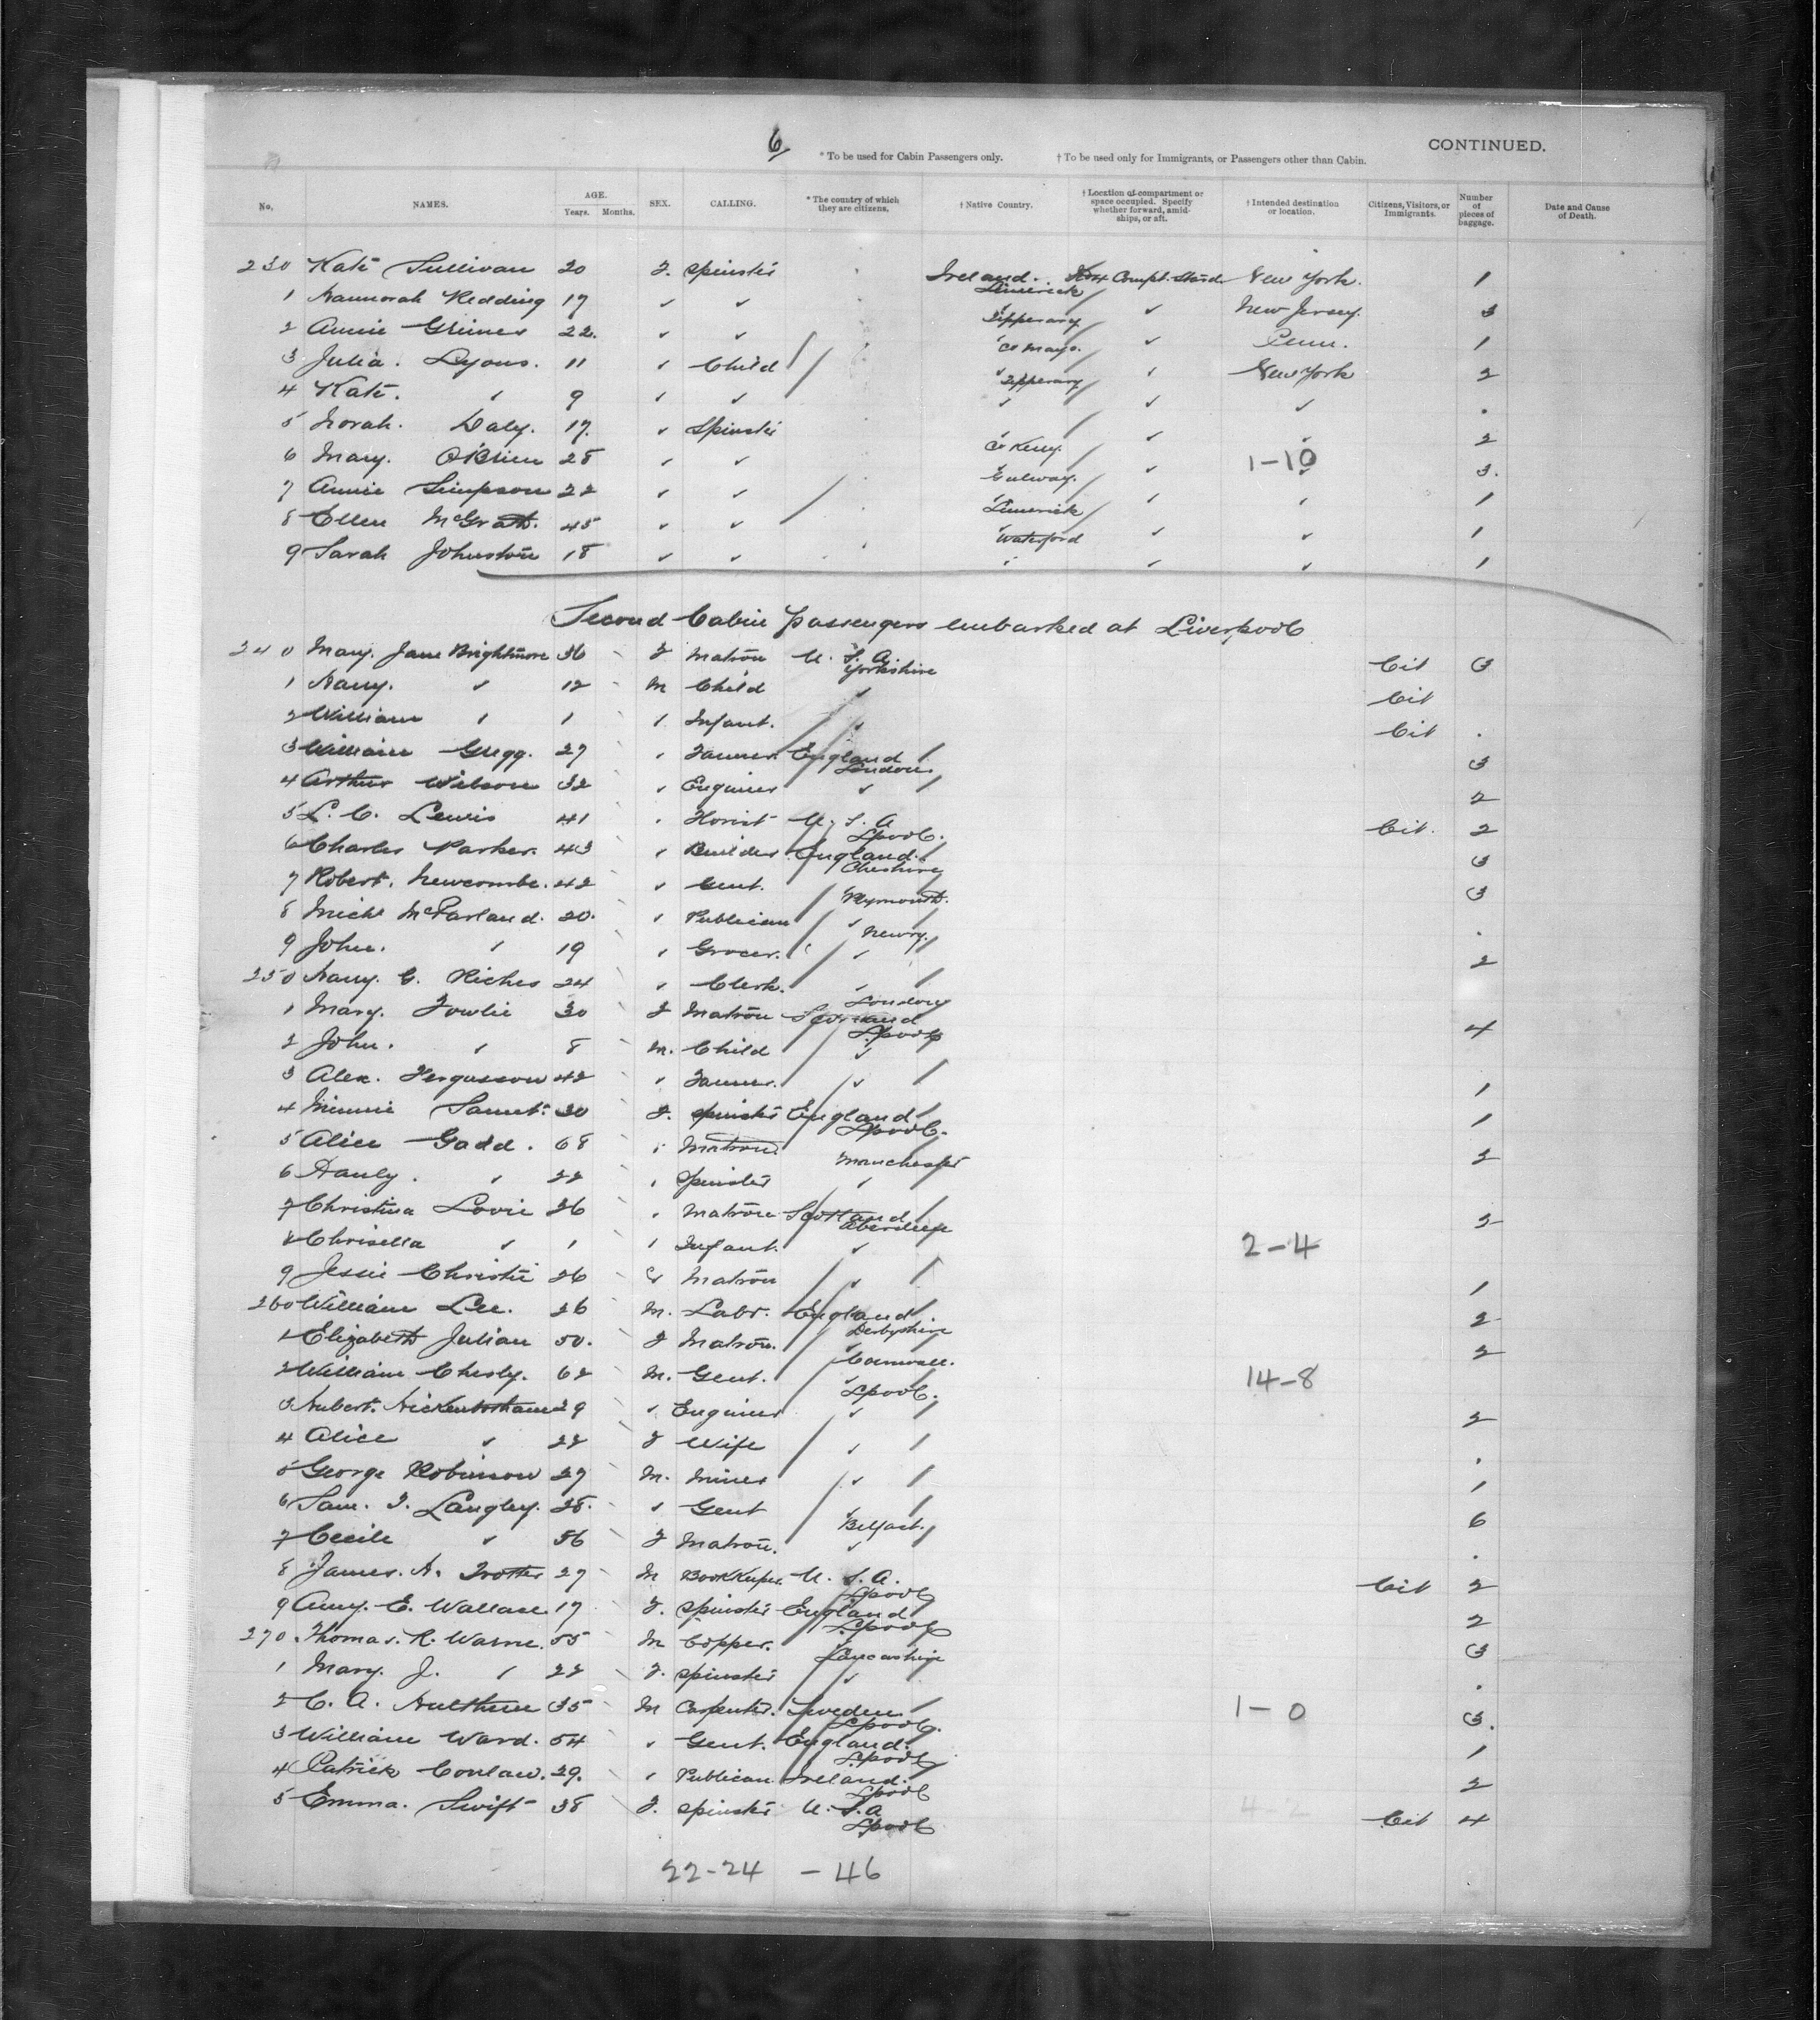 6
* To be used for Cabin Passengers only. † To be used only for Immigrants, or Passengers other than Cabin. CONTINUED.
No. NAMES. AGE. Years. Months. SEX. CALLING. * The country of which they are citizens. † Native Country. † Location of compartment or space occupied. Specify whether forward, amidships, or aft. † Intended destination or location. Citizens, Visitors, or Immigrants. Number of pieces of baggage. Date and Cause of Death.
230 Kate Sullivan 20 F. Spinster Ireland. Limerick Compt. New York. 1
1 Hannorah Redding 17 ✓ ✓ Tipperary ✓ New Jersey. 3
2 Annie Grimes 22. ✓ ✓ Co Mayo. ✓ Penn. 1
3 Julia. Lyons. 11 ✓ Child Tipperary ✓ New York 2
4 Kate. ✓ 9 ✓ ✓ ✓ ✓ ✓ .
5 Norah. Daly. 17. ✓ Spinster Co Kerry. ✓ ✓ 2
6 Mary. O'Brien 28 ✓ ✓ Galway. ✓ 1-10 3.
7 Annie Simpson 22 ✓ ✓ Limerick ✓ ✓ 1
8 Ellen McGrath. 45 ✓ ✓ Waterford ✓ ✓ 1
9 Sarah Johnston 18 ✓ ✓ ✓ ✓ ✓ 1
Second Cabin Passengers embarked at Liverpool
240 Mary. Jane Brightmore 36 F Matron U. S. A. Yorkshire Cit 3
1 Harry. ✓ 12 M Child ✓ Cit
2 William ✓ 1 ✓ Infant. ✓ Cit .
3 William Gregg. 27 ✓ Farmer. England London 3
4 Arthur Wilson 32 ✓ Engineer ✓ 2
5 L. C. Lewis 41 ✓ Florist U. S. A Lpool. Cit. 2
6 Charles Parker. 43 ✓ Builder England. Cheshire 3
7 Robert. Newcombe. 42 ✓ Gent. Plymouth. 3
8 Michl McParland. 20. ✓ Publican ✓ Newry. .
9 John. ✓ 19 ✓ Grocer. ✓ 2
250 Harry. G. Riches 24 ✓ Clerk. ✓ London
1 Mary. Fowlie 30 F Matron Scotland Lpool 4
2 John. ✓ 8 M. Child ✓
3 Alex. Fergusson 42 ✓ Farmer. ✓ 1
4 Minnie 30 F. Spinster England Lpool. 1
5 Alice Gadd. 68 ✓ Matron Manchester 2
6 ✓ 22 ✓ Spinster ✓
7 Christina Lovie 26 ✓ Matron Scotland Aberdeen 2
8 Chrisella ✓ 1 ✓ Infant. ✓ 2-4
9 Jessie Christie 26 Matron ✓ 1
260 William Lee. 26 M. Labr. England Derbyshire 2
1 Elizabeth Julian 50. F Matron. Cornwall. 2
2 William Chesly. 62 M. Gent. Lpool. 14-8
3 Hubert. 29 ✓ Engineer ✓ 2
4 Alice ✓ 22 F Wife ✓ .
5 George Robinson 27 M. Miner ✓ 1
6 Sam. T. Langley. 28. ✓ Gent Belfast. 6
7 Cecile ✓ 56 F Matron. ✓ .
8 James. A. Trotter 27 M Bookkeeper. U. S. A. Lpool Cit 2
9 Amy. E. Wallace. 17 F. Spinster England Lpool 2
270. Thomas. R. Warne. 55 M Copper. Lancashire 3
1 Mary. J. ✓ 22 F. Spinster ✓ .
2 C. A. 35 M Carpenter. Sweden Lpool. 1-0 3.
3 William Ward. 54 ✓ Gent. England. Lpool 1
4 Patrick Conlaw. 29. ✓ Publican Ireland. Lpool 2
5 Emma. Swift 38 F. Spinster U. S. A Lpool Cit 4
22-24 - 46